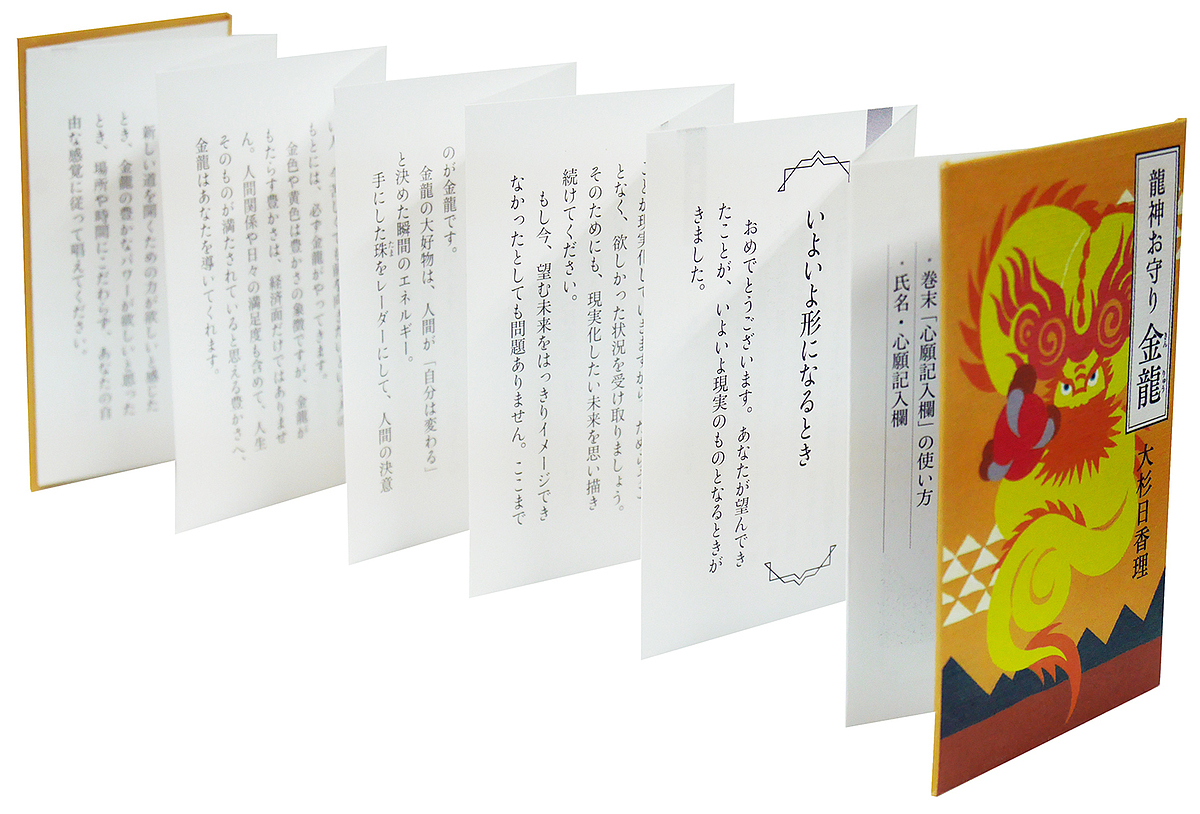 龍神お守り 金龍
きんりゅう
大杉日香理
・巻末「心願記入欄」の使い方
・氏名・心願記入欄
いよいよ形になるとき
おめでとうございます。あなたが望んでき
たことが、いよいよ現実のものとなるときが
きました。
となく、欲しかった状況を受け取りましょう。
そのためにも、現実化したい未来を思い描き
続けてください。
もし今、望む未来をはっきりイメージでき
なかったとしても問題ありません。ここまで
のが金龍です。
金龍の大好物は、人間が「自分は変わる」
と決めた瞬間のエネルギー。
手にした珠をレーダーにして、人間の決意
たま
もとには、必ず金龍がやってきます。
金色や黄色は豊かさの象徴ですが、金龍が
もたらす豊かさは、経済面だけではありませ
ん。人間関係や日々の満足度も含めて、人生
そのものが満たされていると思える豊かさへ、
金龍はあなたを導いてくれます。
新しい道を開くための力が欲しいと感じた
とき、金龍の豊かなパワーが欲しいと思った
とき、場所や時間にこだわらず、あなたの自
由な感覚に従って唱えてください。